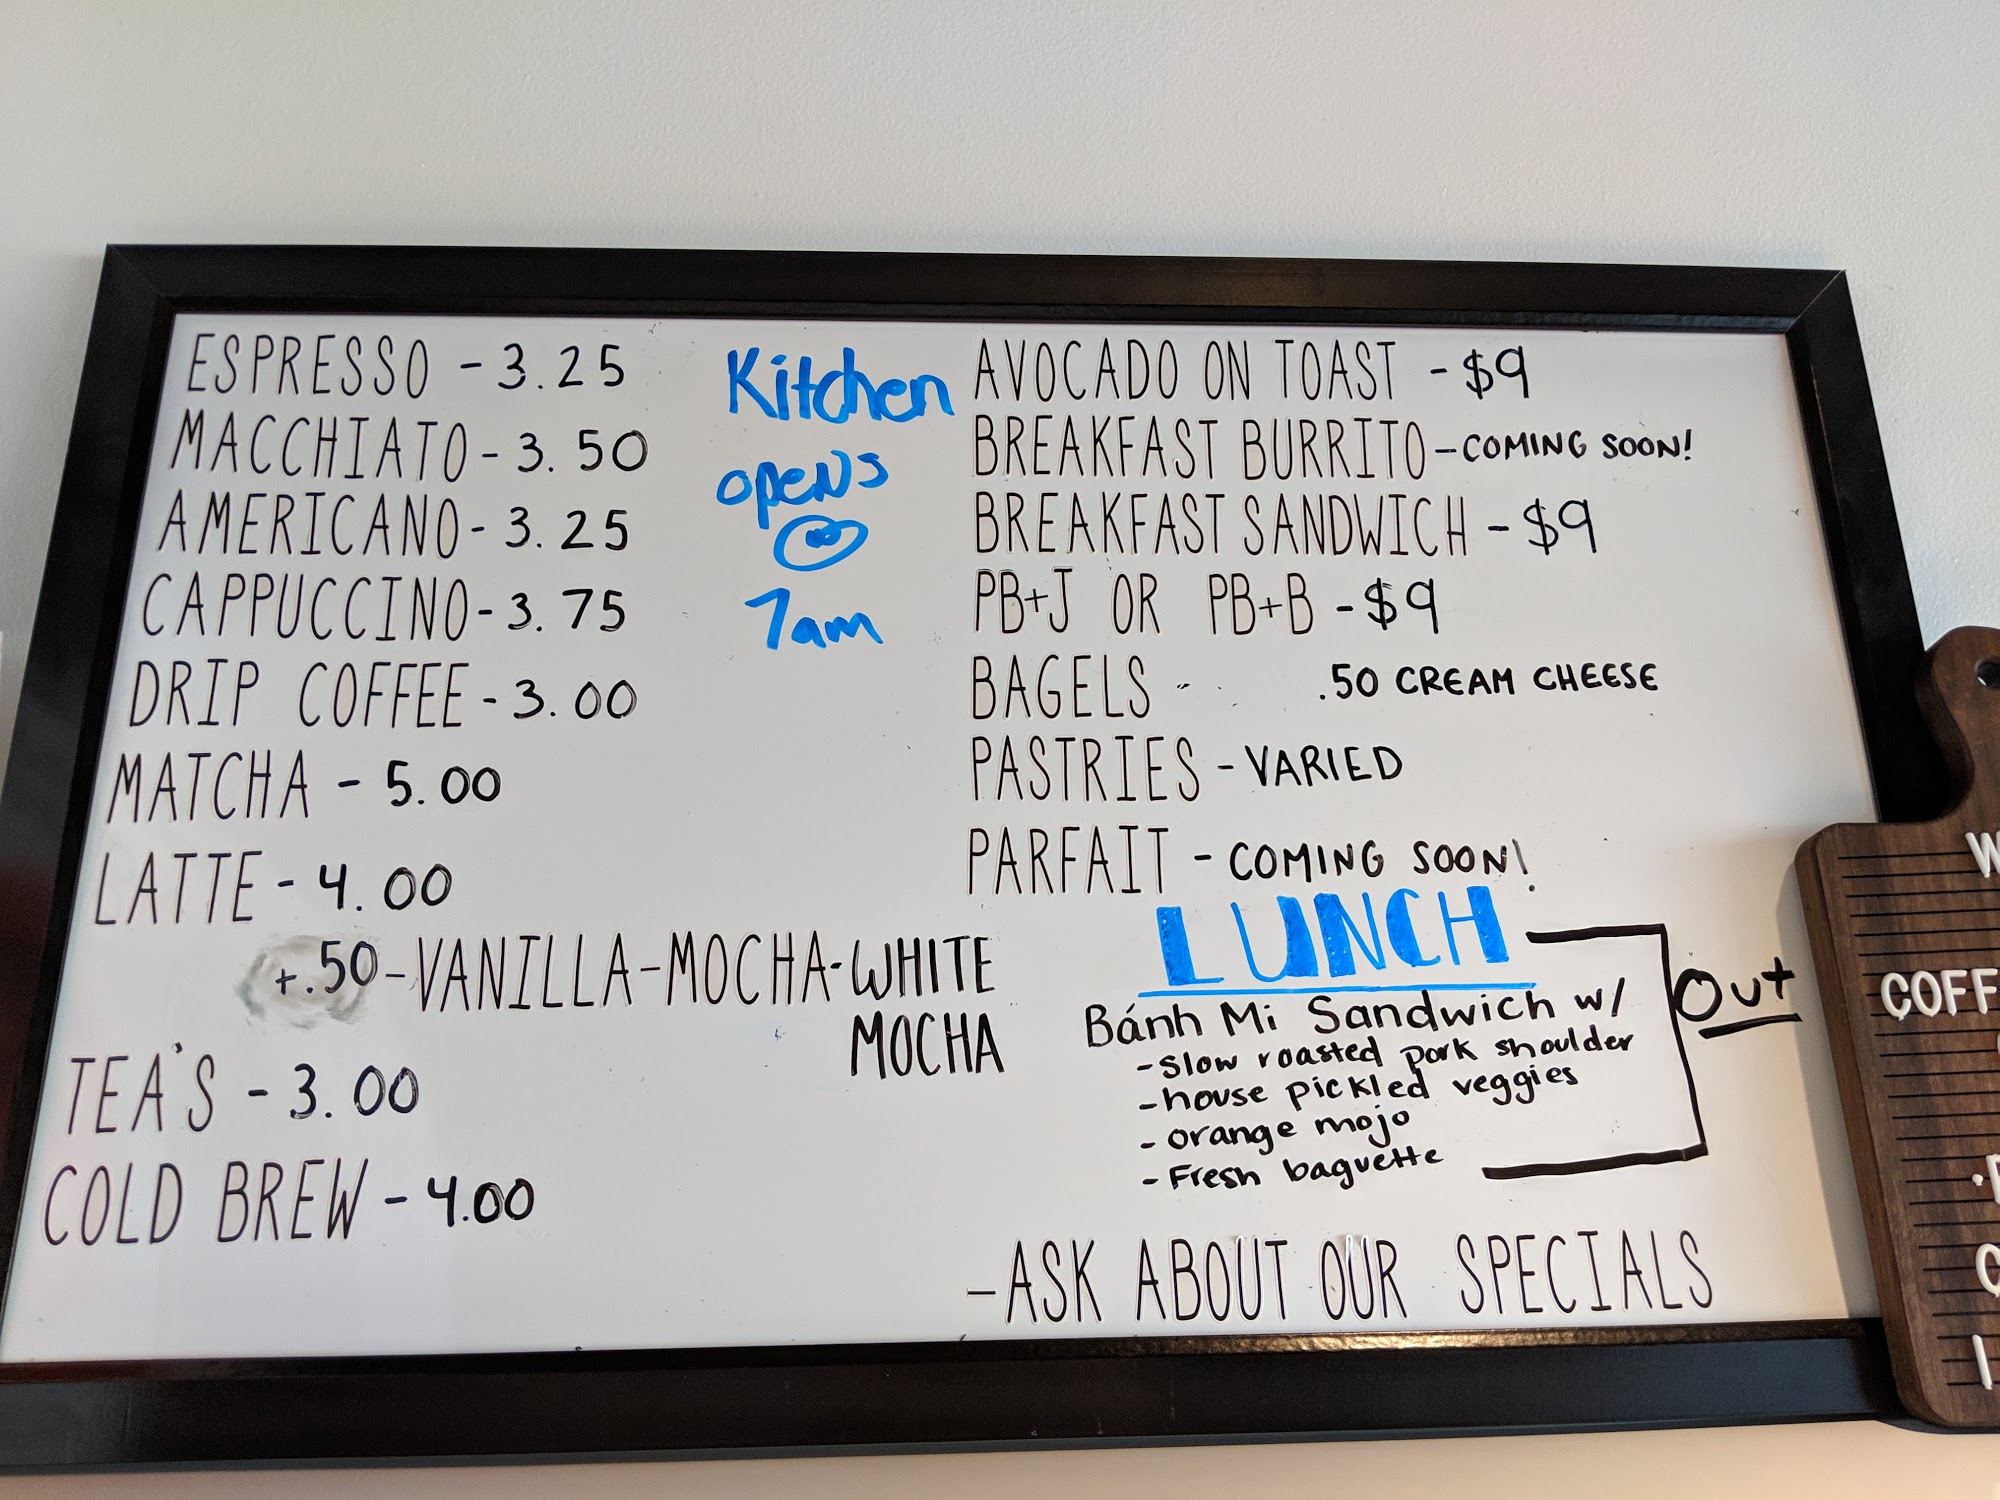 ESPRESSO - 3.25
MACCHIATO - 3.50
AMERICANO - 3.25
CAPPUCCINO - 3.75
DRIP COFFEE - 3.00
MATCHA - 5.00
LATTE - 4.00
+.50 - VANILLA - MOCHA - WHITE
MOCHA
TEA'S - 3.00
COLD BREW - 4.00
Kitchen
opens
@
7am
AVOCADO ON TOAST - $9
BREAKFAST BURRITO - COMING SOON!
BREAKFAST SANDWICH - $9
PB+J OR PB+B - $9
BAGELS - .50 CREAM CHEESE
PASTRIES - VARIED
PARFAIT - COMING SOON!
LUNCH
Bánh Mi Sandwich w/
- slow roasted pork shoulder
- house pickled veggies
- orange mojo
- Fresh baguette
Out
- ASK ABOUT OUR SPECIALS
W
COFF